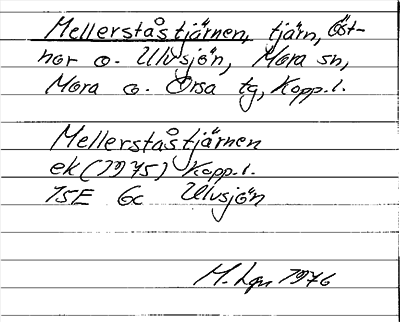 Mellerståstjärnen, tjärn, öst-
nor o. Ulvsjön, Mora sn,
Mora o. Orsa tg, Kopp.l.
Mellerståstjärnen
ek (1975) Kopp.l.
15E 6c Ulvsjön
M. Lgn 1976